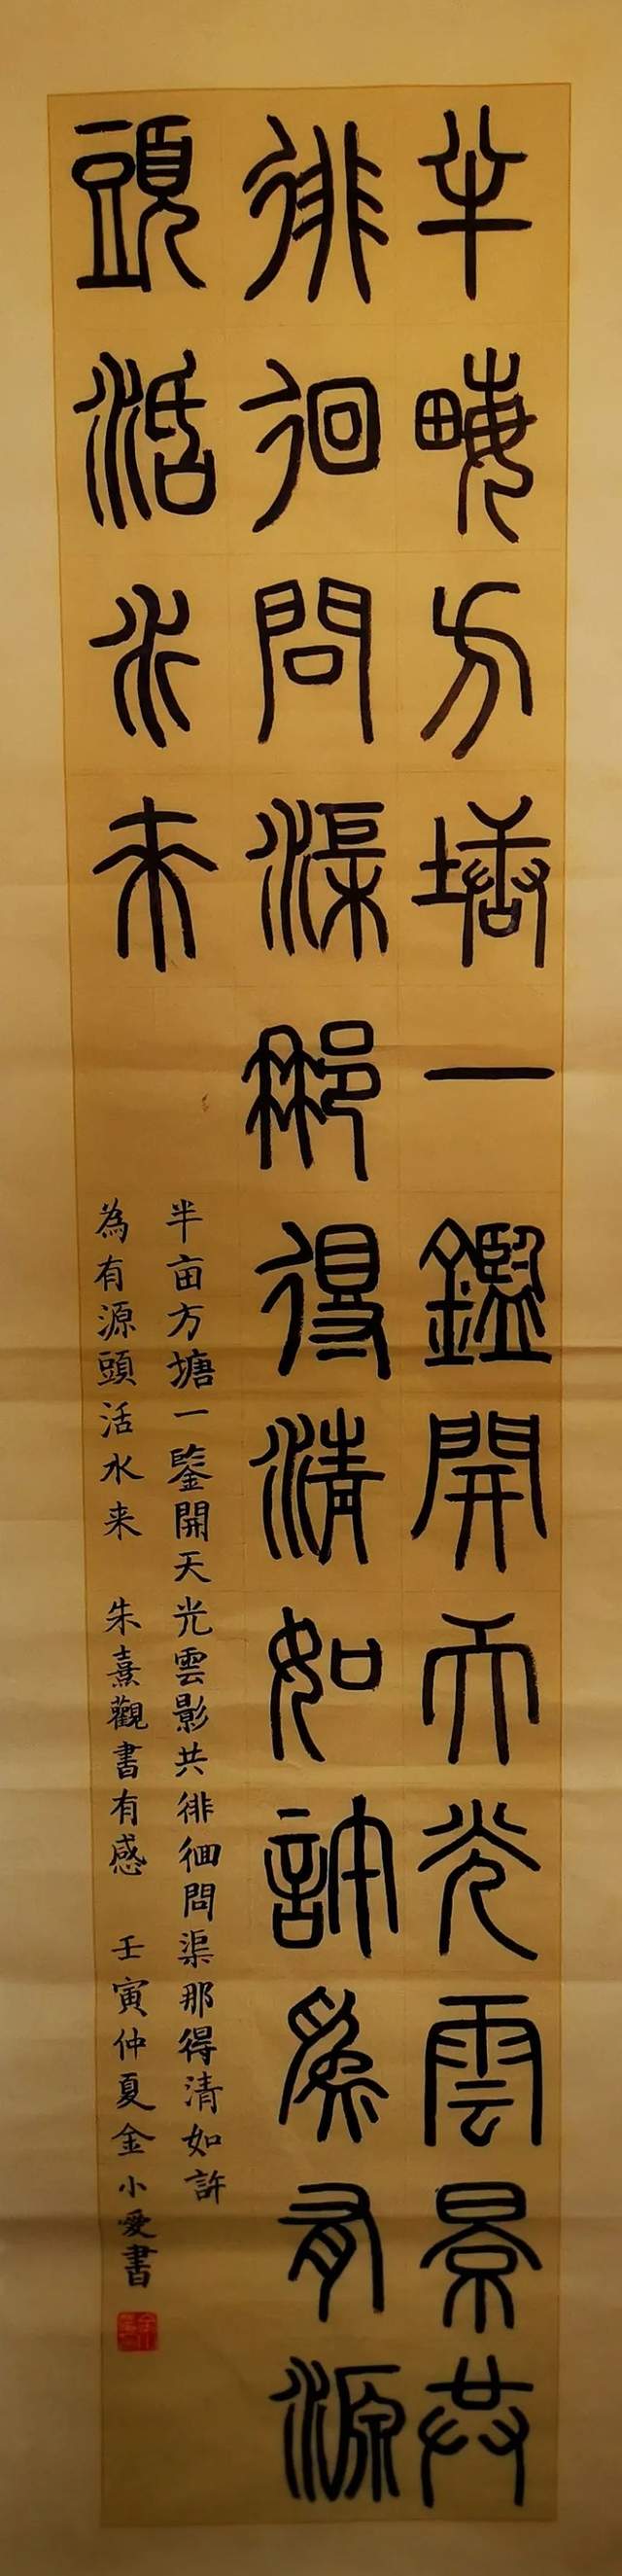 半畮方塘一鑑開天光雲景共
徘徊問渠那得清如許為有源
頭活水来
半亩方塘一鑒開天光雲影共徘徊問渠那得清如許
為有源頭活水来 朱熹觀書有感 壬寅仲夏金小愛書